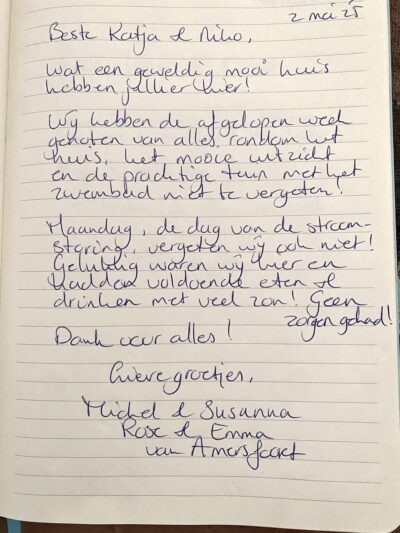 2 mei 25
Beste Katja & Niko,
Wat een geweldig mooi huis
hebben jullie hier!
Wij hebben de afgelopen week
genoten van alles rondom het
huis, het mooie uitzicht
en de prachtige tuin met het
zwembad niet te vergeten!
Maandag, de dag van de stroom-
storing, vergeten wij ook niet!
Gelukkig waren wij hier en
hadden voldoende eten &
drinken met veel zon! Geen
zorgen gehad!
Dank voor alles!
Lieve groetjes,
Michel & Susanna
Rose & Emma
van Amersfoort